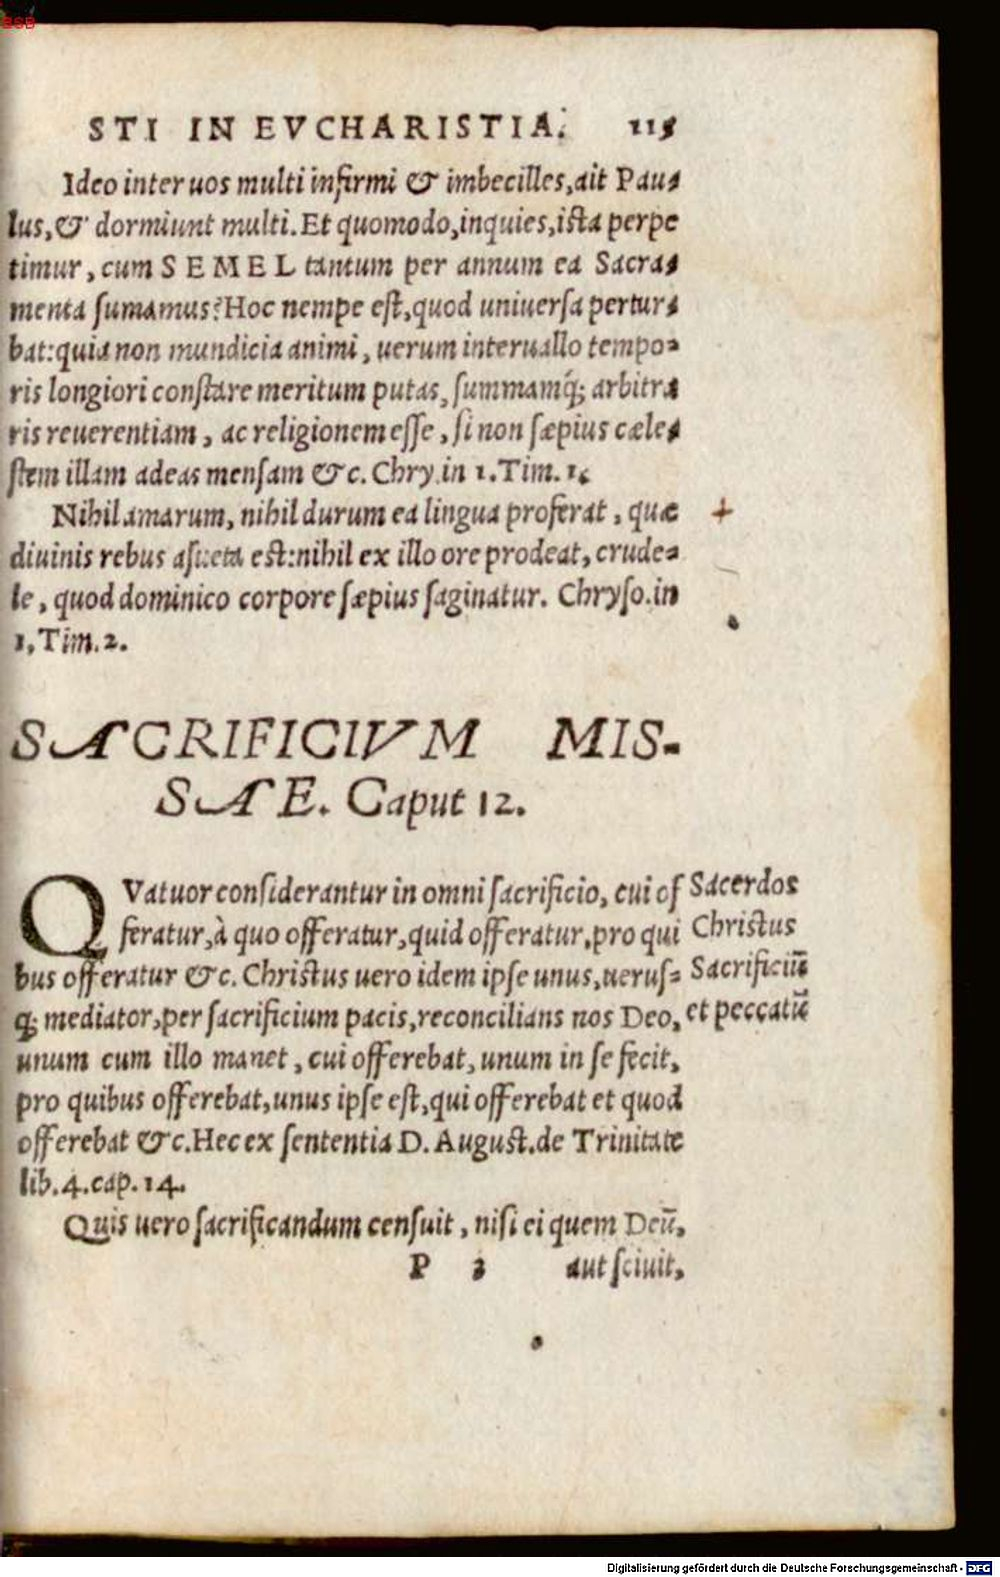 BSB
STI IN EVCHARISTIA. 115
Ideo inter uos multi infirmi & imbecilles, ait Pau-
lus, & dormiunt multi. Et quomodo, inquies, ista perpe
timur, cum SEMEL tantum per annum ea Sacra-
menta sumamus? Hoc nempe est, quod uniuersa pertur-
bat: quia non mundicia animi, uerum interuallo tempo-
ris longiori constare meritum putas, summamq́; arbitra
ris reuerentiam, ac religionem esse, si non sæpius cæle-
stem illam adeas mensam &c. Chry. in 1. Tim. 1.
Nihil amarum, nihil durum ea lingua proferat, quæ
diuinis rebus asueta est: nihil ex illo ore prodeat, crude-
le, quod dominico corpore sæpius saginatur. Chryso. in
1. Tim. 2.
SACRIFICIVM MIS-
SAE. Caput 12.
QVatuor considerantur in omni sacrificio, cui of
feratur, à quo offeratur, quid offeratur, pro qui
bus offeratur &c. Christus uero idem ipse unus, uerus-
q; mediator, per sacrificium pacis, reconcilians nos Deo,
unum cum illo manet, cui offerebat, unum in se fecit,
pro quibus offerebat, unus ipse est, qui offerebat et quod
offerebat &c. Hec ex sententia D. August. de Trinitate
lib. 4. cap. 14.
Sacerdos
Christus
Sacrificiũ
et peccatũ
Quis uero sacrificandum censuit, nisi ei quem Deũ,
P 3 aut sciuit,
Digitalisierung gefördert durch die Deutsche Forschungsgemeinschaft - DFG